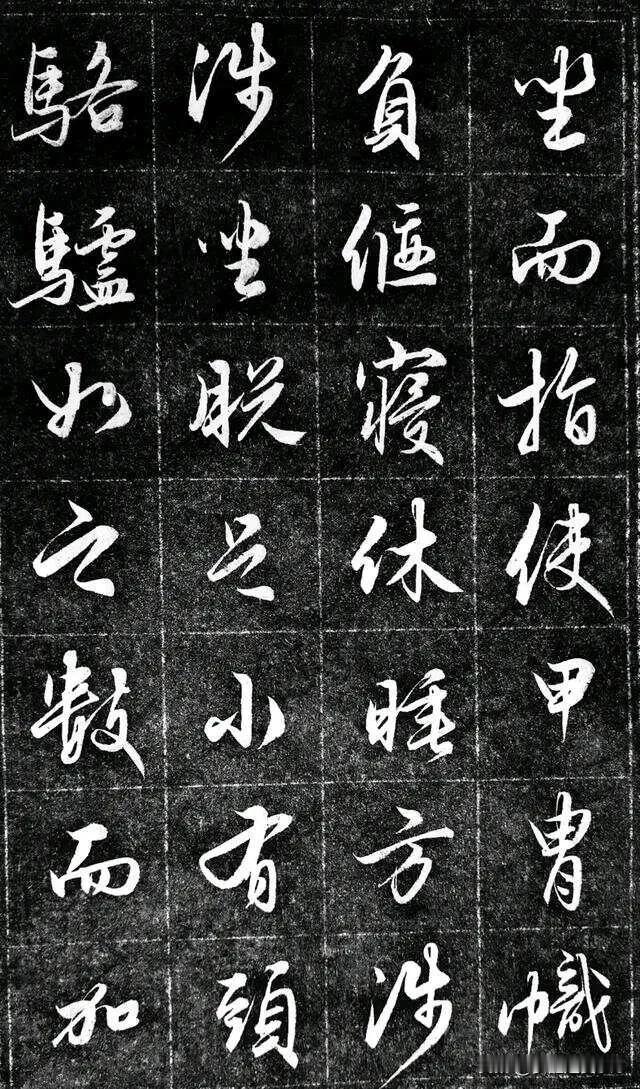 坐而指使甲胄幟
負偃寝休睡方涉
涉坐脱足小有頭
駱驢如之數而加